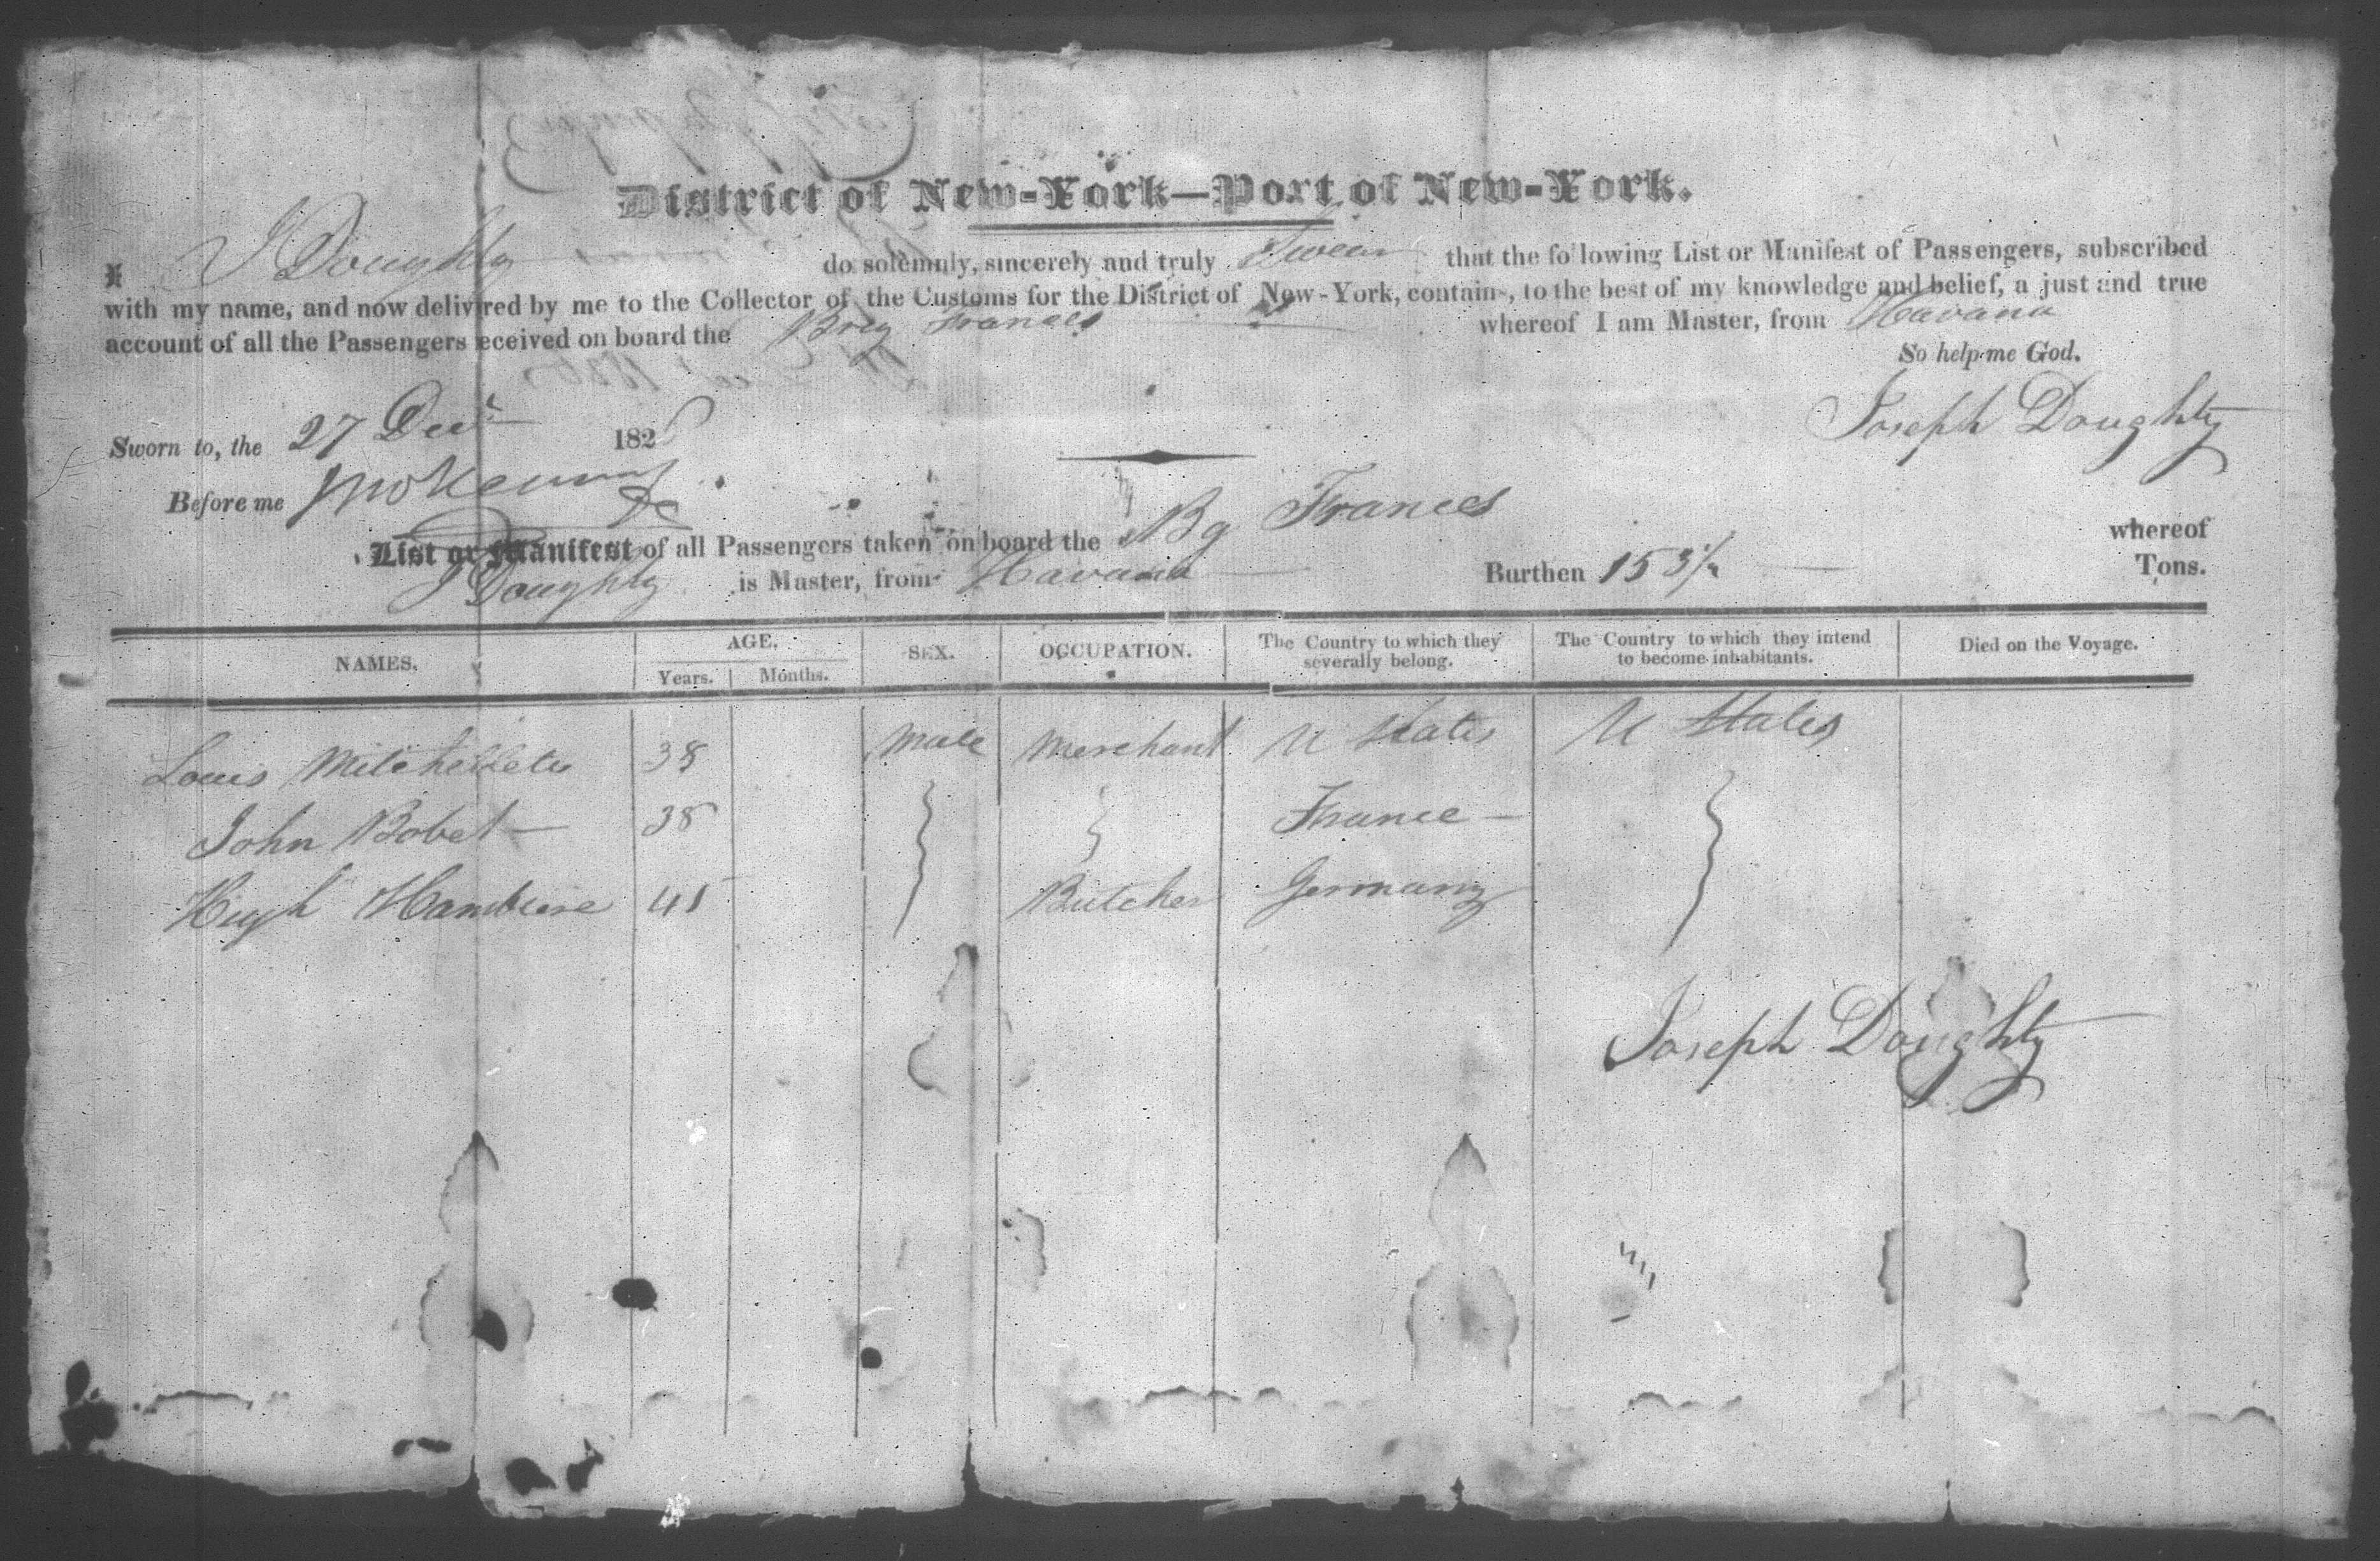 District of New-York—Port of New-York.
I J Doughty do solemnly, sincerely and truly Swear that the following List or Manifest of Passengers, subscribed
with my name, and now delivered by me to the Collector of the Customs for the District of New-York, contains, to the best of my knowledge and belief, a just and true
account of all the Passengers received on board the Brig Frances whereof I am Master, from Havana
So help me God.
Joseph Doughty
Sworn to, the 27 Decr 182
Before me
List or Manifest of all Passengers taken on board the Bg Frances whereof
J Doughty is Master, from Havana Burthen 153 Tons.
NAMES. AGE. SEX. OCCUPATION. The Country to which they severally belong. The Country to which they intend to become inhabitants. Died on the Voyage.
Years. Months.
Louis 38 Male Merchant U States U States
John Bobet 38 France
Hugh 45 Butcher Germany
Joseph Doughty